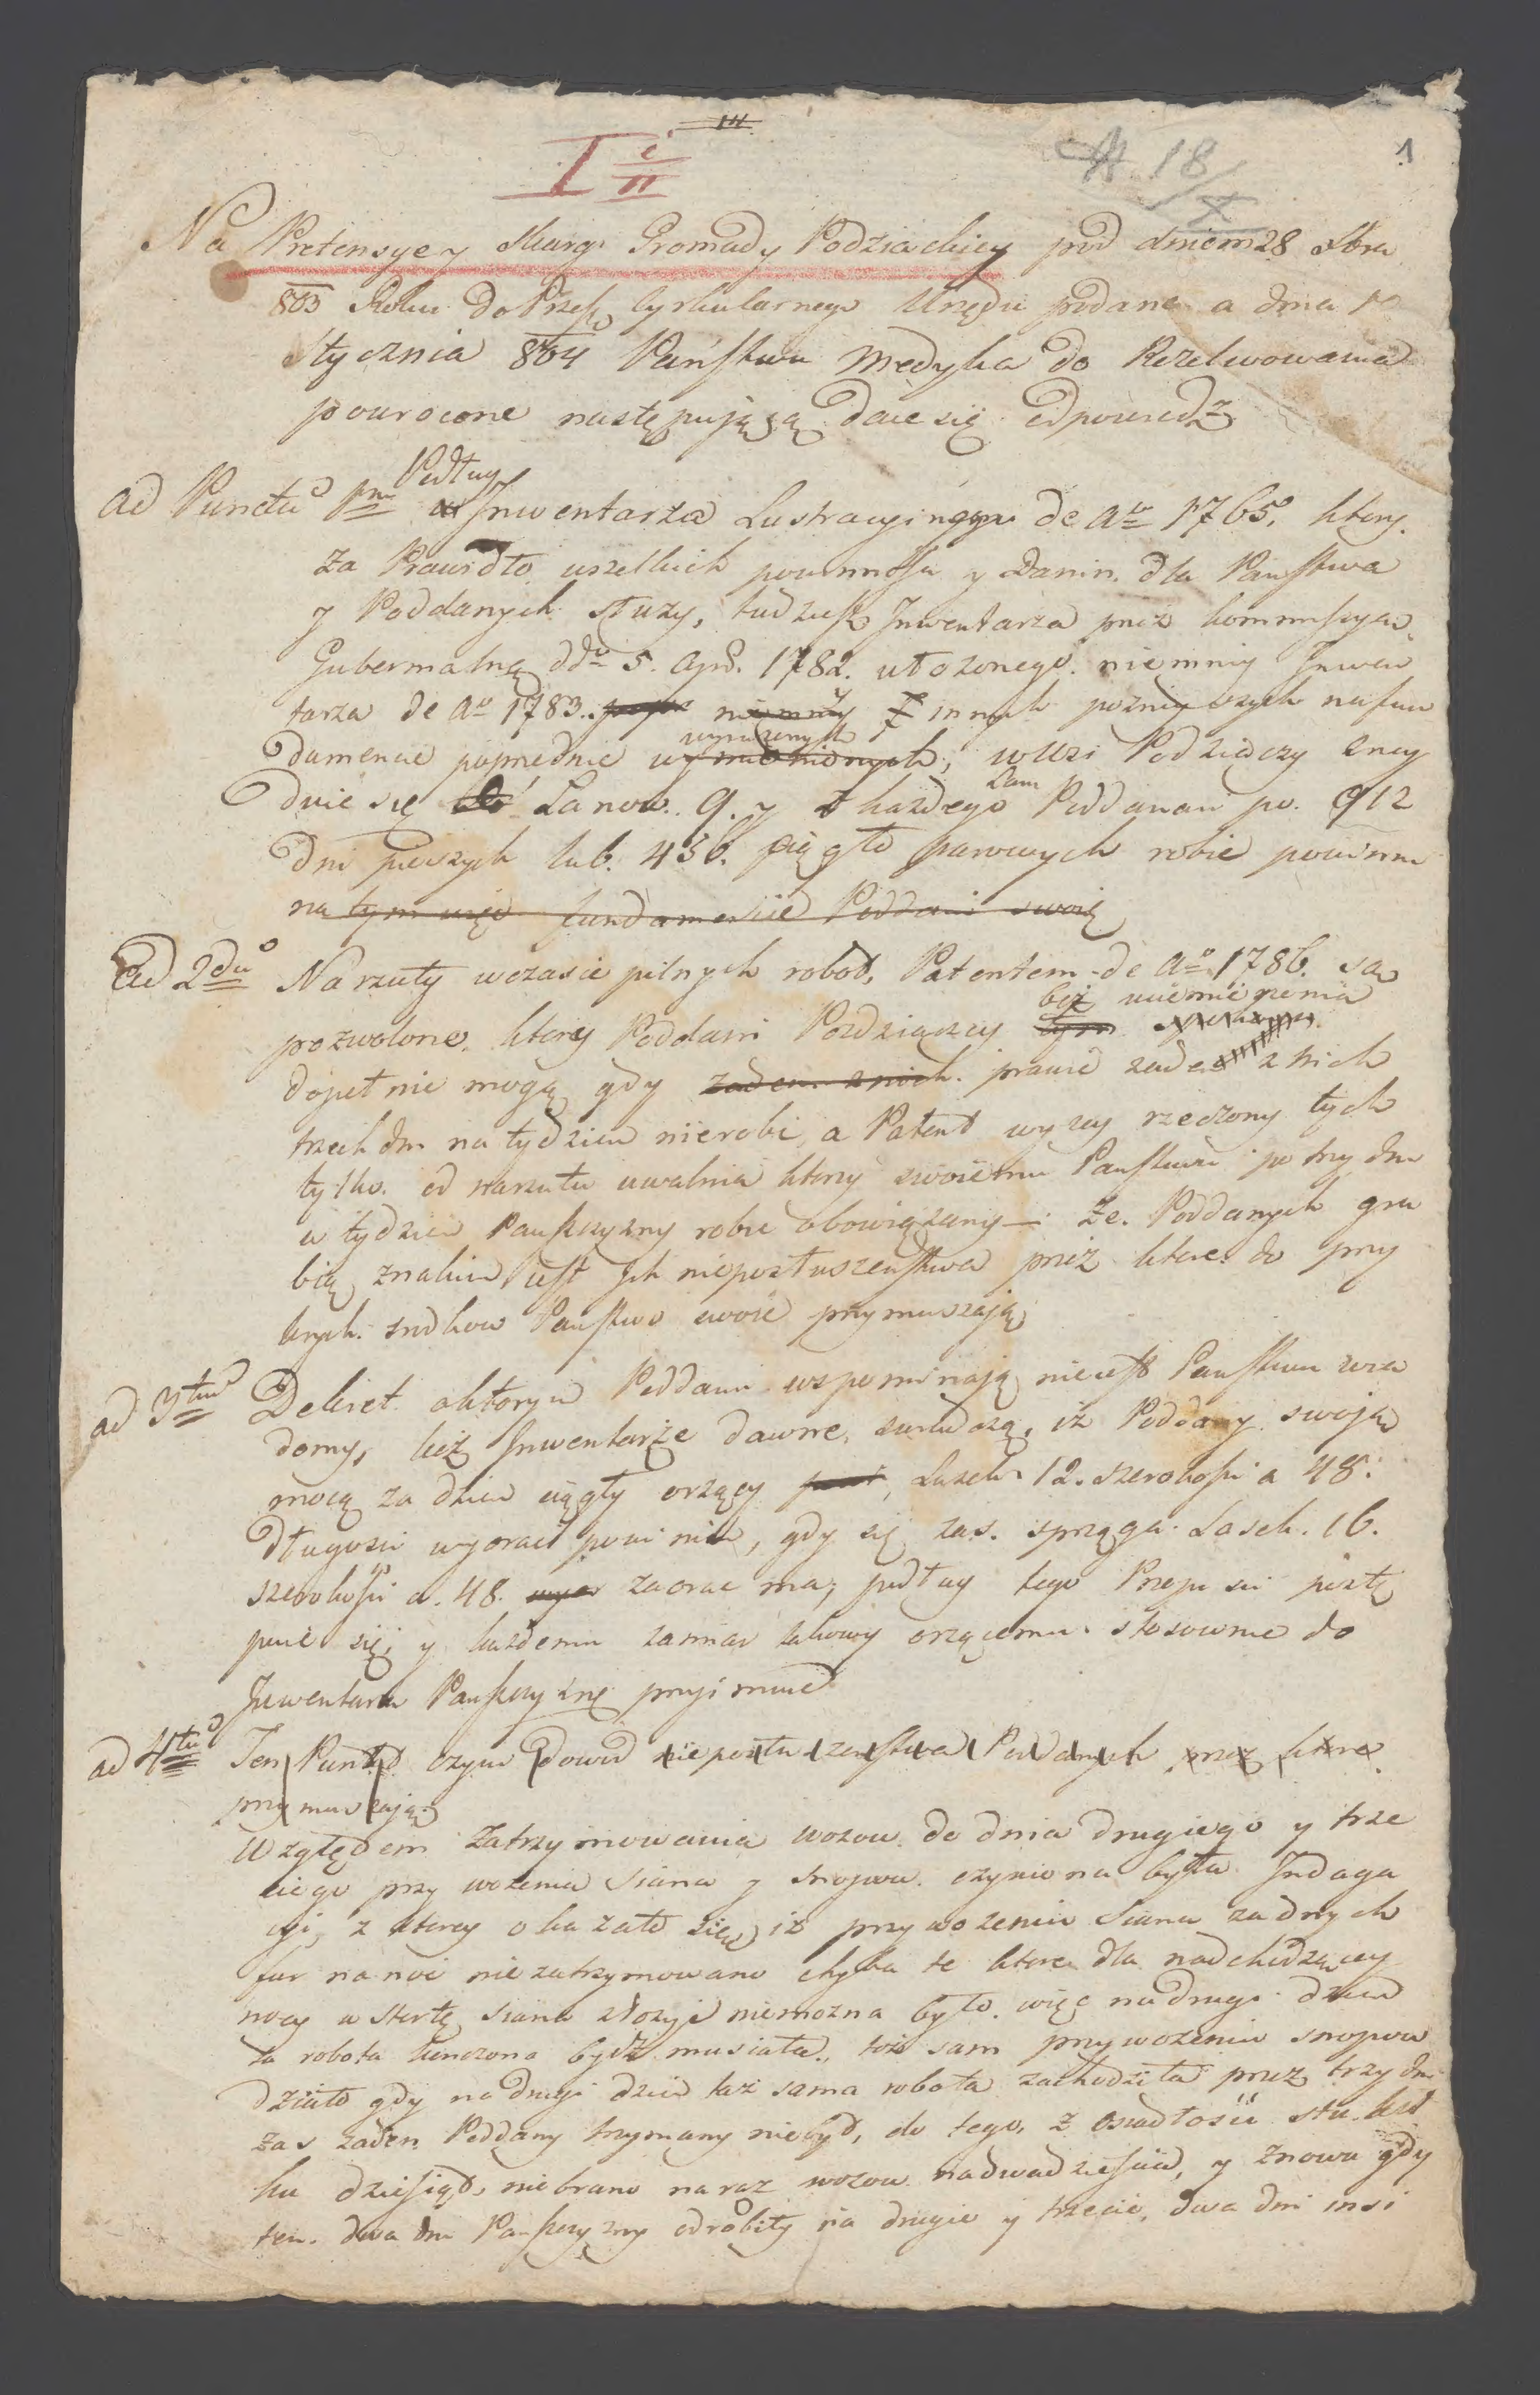 I c/II
N. 18/X
1
Na Pretensye y skargi Gromady Podziackiey pod dniem 28 Xbra
803 Roku do Przes. Cyrkularnego Urzędu podane a dnia
Stycznia 804 Państwu Medyka do Rezolwowania
powrocone następującą daie się odpowiedź
ad Punctu pmo Podług Inwentarza Lustracyinego de Ao 1765, ktory
za Prawidło wszelkich powinnosci y Danin dla Państwa
y Poddanych słuzy, tudziesz Inwentarza przez kommissyą
Gubernialną ddto 5. Apr. 1782. ułozonego niemniy Inwen
tarza de Ao 1783. niemniy y innych poznieyszych na fun
damencie poprzednie wyrazonych, w Wsi Podziaczy znay
duie się Łanow 9. y z kazdego Łanu Poddanni po. 912
dni pieszych lub 456. ciągło parowych robic powinni
na tym więc fundamencie Poddani swoią
Ad 2do Narzuty wczasie pilnych robot, Patentem de Ao 1786. są
pozwolone, ktory Poddani Pozdziączcy bez uciemięzenia
dopełnic mogą gdy zaden z nich prawie zaden z nich
trzech dni na tydzien nierobi, a Patent wyzey rzeczony tych
tylko od narzutu uwalnia ktorzy swoiemu Państwu po trzy dni
w tydzien Panszczyzny robic obowiązany—: Ze Poddanych gra
bią znakiem iest Ich nieposłuszenstwa przez ktore do przy
krych srodkow Panstwo swoie przymuszaią
ad 3tio Dekret o ktorym Poddani wspominaią nieiest Panstwu wia
domy, lecz Inwentarze dawne, swiadczą, iz Poddany swoią
mocą za dzien ciągły orzący Lasek 12. szerokosci a 48.
długosci wyorac powinien, gdy się zas sprzęga Lasek. 16.
szerokosci a. 48. zaorac ma, podług tego Przepisu postę
puie się, y kazdemu zamiar takowy orzącemu stosownie do
Inwentarza Panszczyznę przyimuie
ad 4to Ten Punkt czyni dowod nieposłuszenstwa Poddanych przez ktore
przymuszaią
Względem Zatrzymowania wozow do dnia drugiego y trze
ciego przy wozeniu siana y snopow czyniona była Indaga
cyi, z ktorey okazało się, iz przy wozeniu Siana zadnych
fur na noc nie zatrzymowano chyba te ktore dla nadchodzącey
nocy w stertę siana złozyc niemozna było, więc na drugi dzien
ta robota konczona bydz musiała, toz sam przy wozeniu snopow
działo gdy na drugi dzien taz sama robota zachodziła przez trzy dni
zas zaden Poddany trzymany niebył, do tego z osiadłosci stu kil
ku dziesiąt, niebrano na raz wozow nadwadziescia, y znowu gdy
ten dwa dni Panszczyzny odrobiły na drugie y trzecie, dwa dni insi